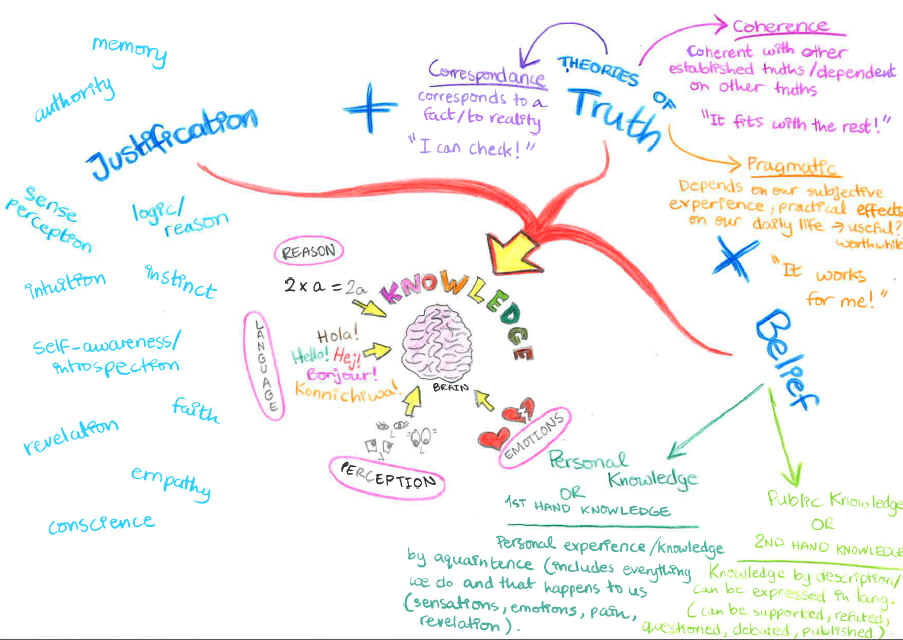 memory
authority
Justification
sense
perception
logic/
reason
intuition
instinct
self-awareness/
introspection
faith
revelation
empathy
conscience
+
THEORIES OF
Truth
Correspondance
corresponds to a
fact/to reality
"I can check!"
Coherence
Coherent with other
established truths/dependent
on other truths
"It fits with the rest!"
Pragmatic
Depends on our subjective
experience; practical effects
on our daily life → useful?
worthwhile
"It works
for me!"
+
Belief
KNOWLEDGE
REASON
2 x a = 2a
LANGUAGE
Hola!
Hello! Hej!
Bonjour!
Konnichiwa!
BRAIN
PERCEPTION
EMOTIONS
Personal
Knowledge
OR
1ST HAND KNOWLEDGE
Personal experience/knowledge
by aquaintence (includes everything
we do and that happens to us
(sensations, emotions, pain,
revelation).
Public Knowledge
OR
2ND HAND KNOWLEDGE
Knowledge by description/
can be expressed in lang.
(can be supported, refuted,
questioned, debated, published).